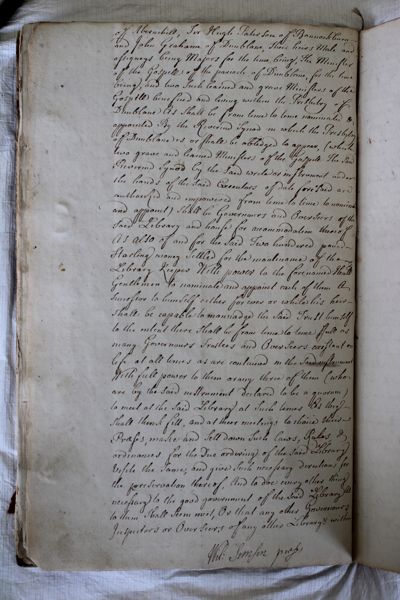 off Abernchill, Sir Hugh Paterson off Bannockburn
and John Grahame off Dumblane, their heirs Male and
assigneys being Majors for the time being, The Minister
off the Gospell of the parioch of Dumblane, for the time
being, and two such learned and grave Ministers of the
Gospell benefised and living within the Presbitry of
Dumblane As Shall be from time to time nominated &
appointed By the Reverend Synod in which the Presbitry
off Dumblane is or shall be obledged to appear, (which
two grave and learned Ministers off the Gospell The Said
Reverend Synod By the Said write or instrument under
the hands of the Said Executors of date forsaid are
authorised and impowered from time to time to nominate
and appoint) Shall be Governours and Overseers of the
Said Library and house for accommodation thereof
As also of and for the Said Two hundered pound
Starling money Settled for the maintenance off the
Library Keeper With power to the forenamed
Gentlemen to nominate and appoint each of them A
Successor to himself either for ever or whilst his heir
Shall be capable to mannadge the Said Trust himself
to the intent there Shall be from time to time Just as
many Governours Trustees and Overseers constant in
life at all times as are contained in the Said instrument
With full power to them or any three of them (who
are by the Said instrument declared to be a quorum)
to meet at the Said Library at Such times As they
Shall think fitt, and at their meetings to choice their
Præses, make and Sett down Such laws, Rules, &
ordinances for the Due ordering of the Said Library
Visite the Same, and give Such necessary directions for
the preservation thereof And to doe every other thing
necessary to the good government of the Said Library As
to them Shall Seem meet, Or that any other Governours
Inspectors or Overseers of any other Library within
Will: Simson